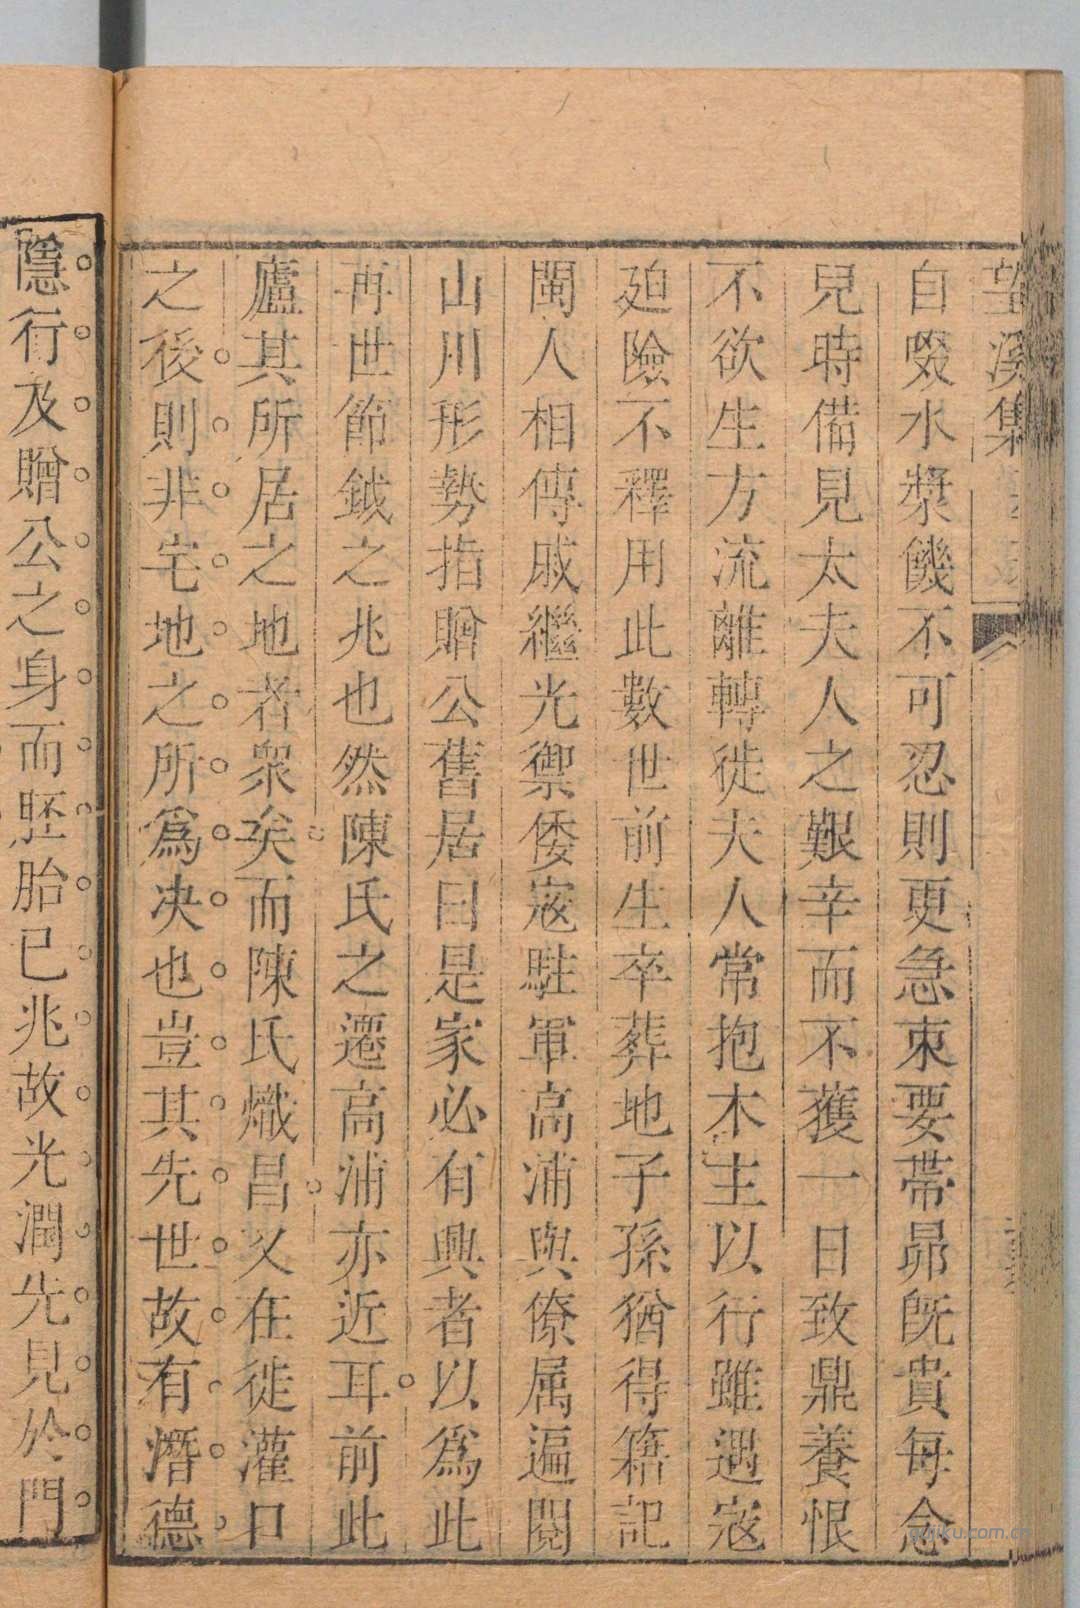 望溪集
自啜水漿饑不可忍則更急束要帶昴旣貴每念
兒時備見太夫人之艱辛而不獲一日致鼎養恨
不欲生方流離轉徙夫人常抱木主以行雖遇寇
廹險不釋用此數世前生卒葬地子孫猶得籍記
閩人相傳戚繼光禦倭寇駐軍高浦與僚属遍閱
山川形勢指贈公舊居曰是家必有興者以爲此
再世節鉞之兆也然陳氏之遷高浦亦近耳前此
廬其所居之地者衆矣而陳氏熾昌又在徙灌口
之後則非宅地之所爲决也豈其先世故有潛德
隱行及贈公之身而胚胎已兆故光潤先見於門
aojiku.com.cn